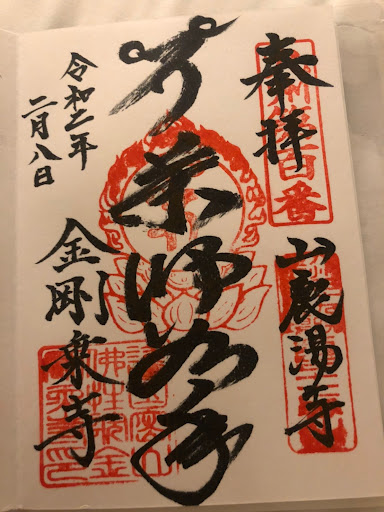 奉拝
百番
山鹿湯寺
薬師如来
令和二年
二月八日
金剛乗寺